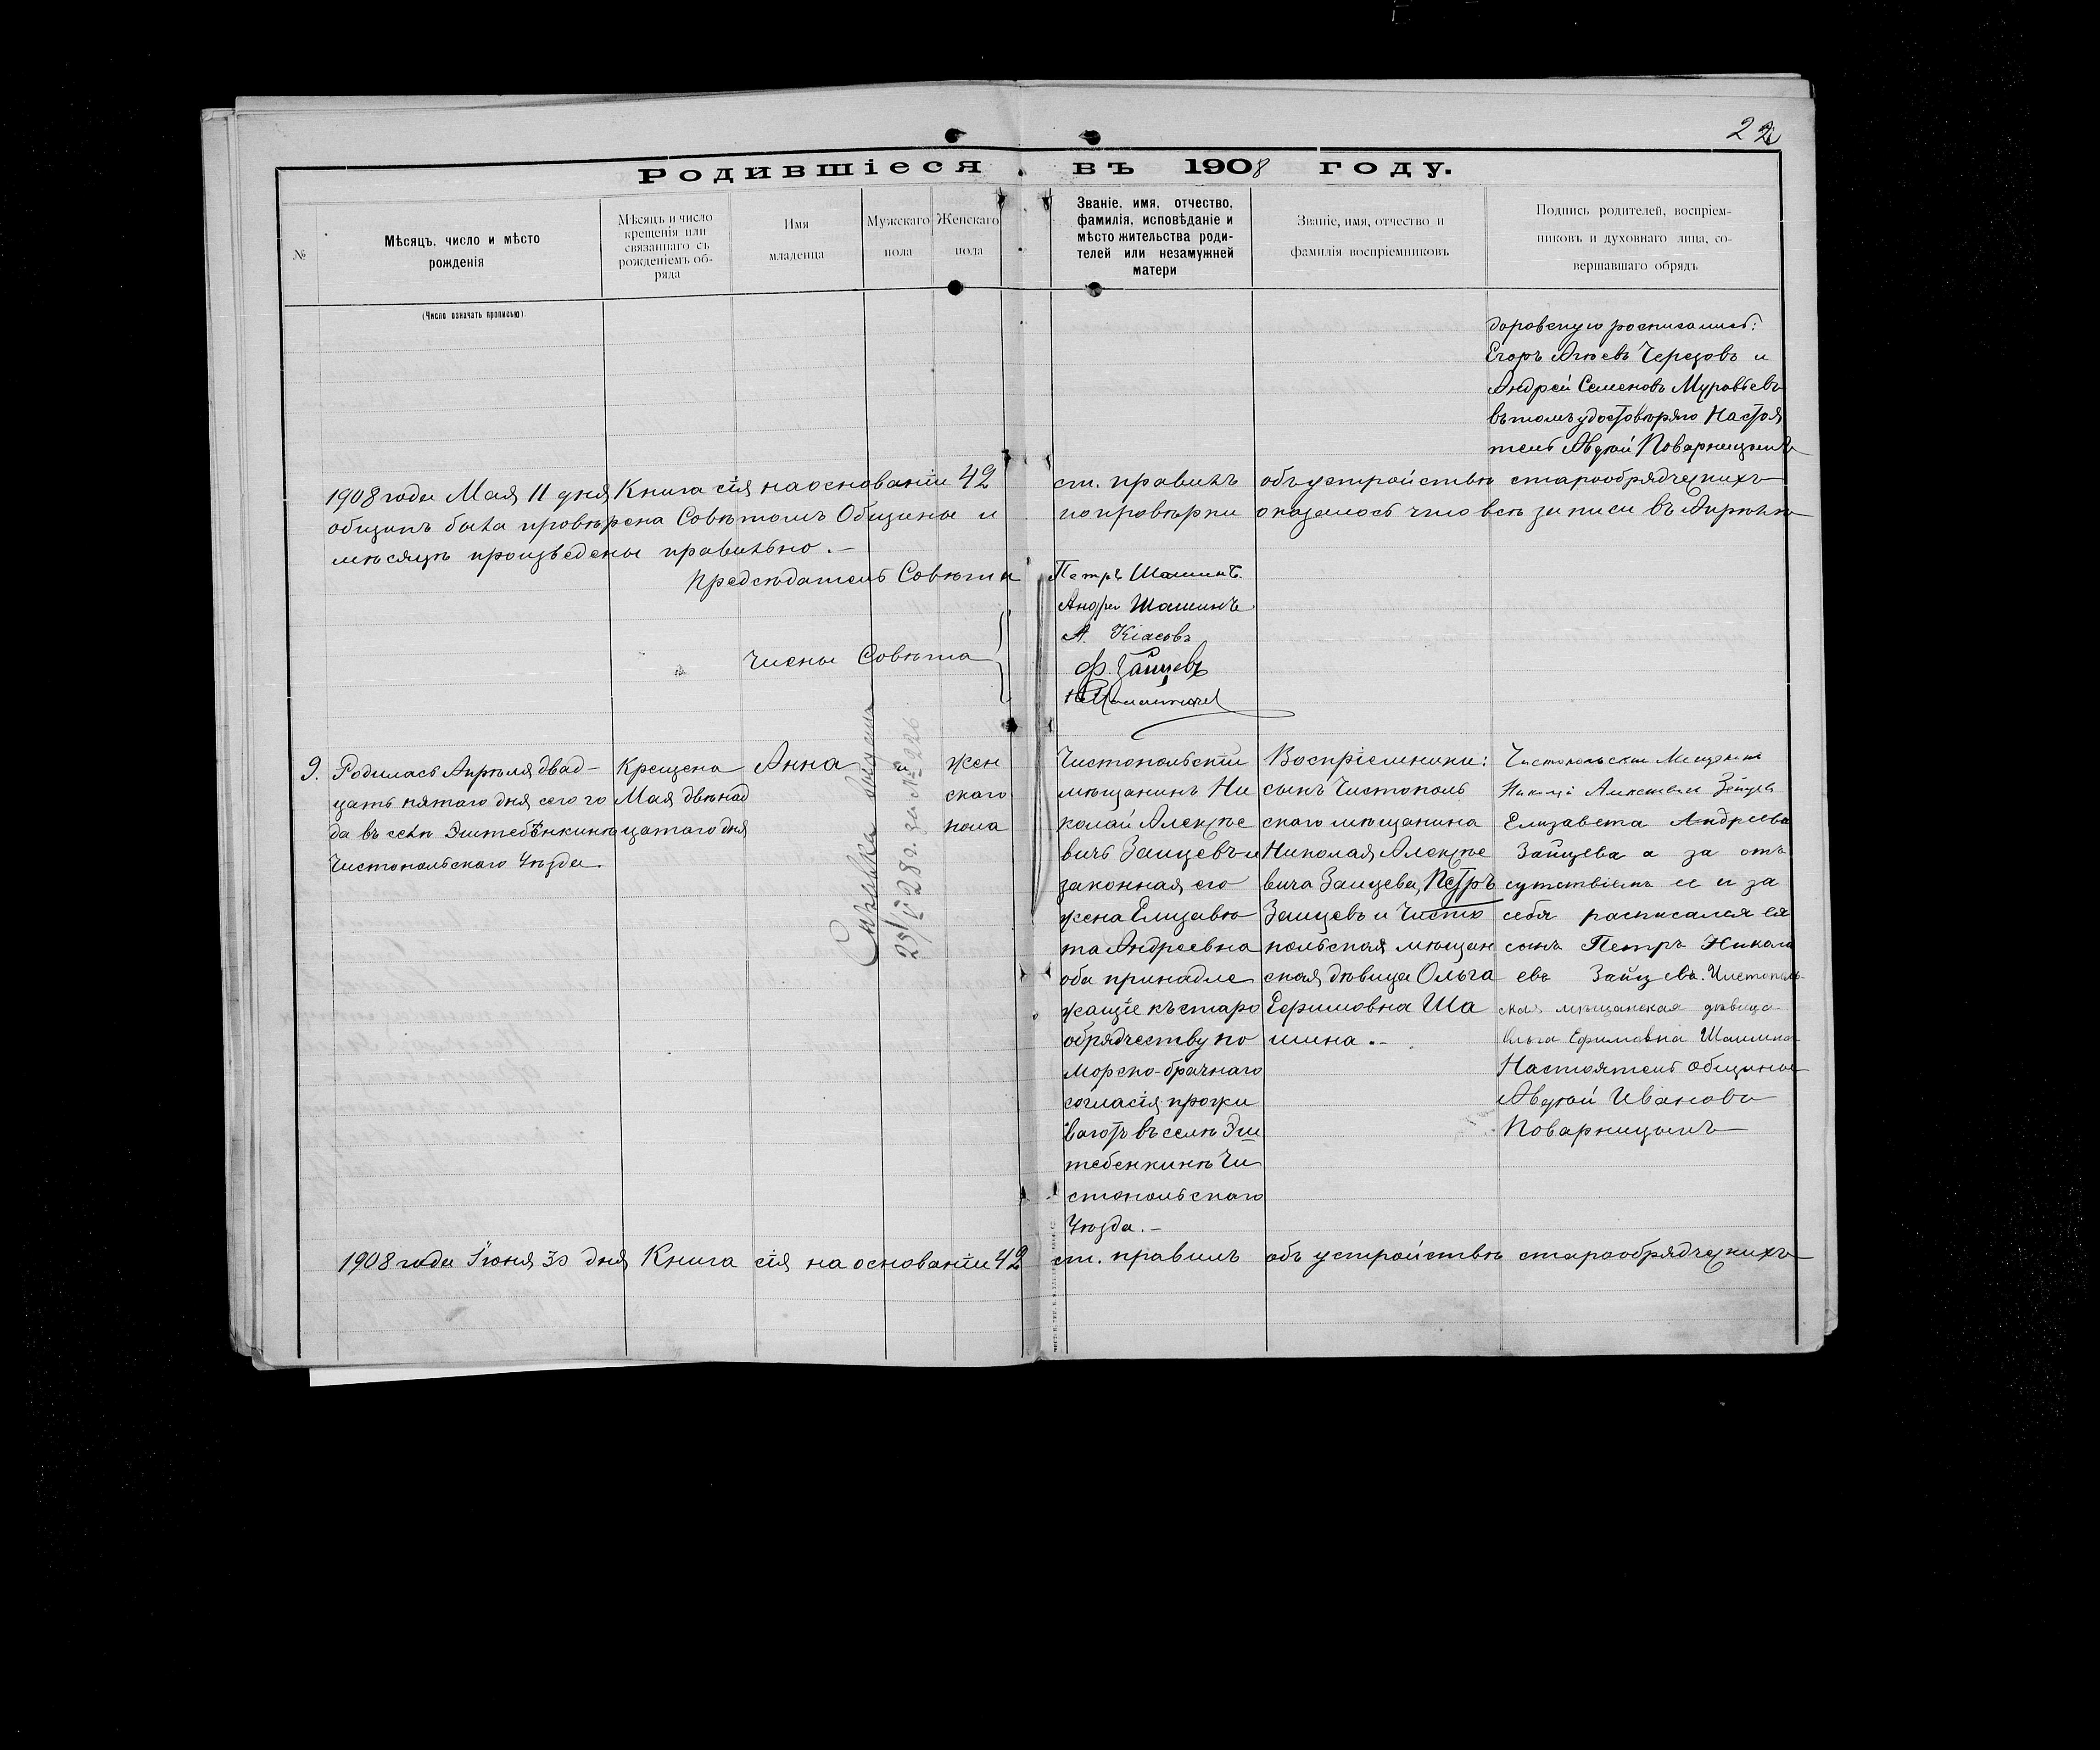 22
Родившіеся въ 1908 году.
№
Мѣсяцъ, число и мѣсто
рожденія
Мѣсяцъ и число
крещенія или
связаннаго съ
рожденіемъ об-
ряда
Имя
младенца
Мужскаго
пола
Женскаго
пола
Званіе, имя, отчество,
фамилія, исповѣданіе и
мѣсто жительства роди-
телей или незамужней
матери
Званіе, имя, отчество и
фамилія воспріемниковъ
Подпись родителей, воспріем-
никовъ и духовнаго лица, со-
вершавшаго обрядъ
(Число означать прописью)
Егоръ Агѣевъ Черезовъ и
Андрей Семеновъ Муравьевъ
въ томъ удостовѣряю Настоя
тель Авдѣй Поварницынъ
1908 года Мая 11 дня Книга сія на основаніи 42 ст. правилъ объ устройствѣ старообрядческихъ
общинъ была провѣрена Совѣтомъ Общины и по провѣрки оказалось что всѣ записи въ Апрѣлѣ
мѣсяцѣ произведены правильно.-
Предсѣдатель Совѣта Петръ Шашинъ.
Андрей Шашинъ
А. Кіасовъ
Члены Совѣта
Ф. Зайцевъ
9.
Родилась Апрѣля двад-
цать пятаго дня сего го
да въ селѣ Эштебѣнкинѣ
Чистопольскаго Уѣзда
Крещена
Мая двѣнад
цатаго дня
Анна
Жен
скаго
пола
Справка выдана
28 г. за № 226
Чистопольскій
мѣщанинъ Ни
колай Алексѣе
вичъ Зайцевъ и
законная его
жена Елизавѣ
та Андреевна
оба принадле
жащіе къ старо
обрядчеству по
морско-брачнаго
согласія, прожи
ваютъ въ селѣ Эш
тебенкинѣ Чи
стопольскаго
Уѣзда.-
Воспріемники:
сынъ Чистополь
скаго мѣщанина
Николая Алексѣе
вича Зайцева, Петръ
Зайцевъ и Чисто
польская мѣщан
ская дѣвица Ольга
Ефимовна Ша
шина.-
Чистопольскій Мещанинъ
Николай Алексѣевъ Зайцевъ
Елизавета Андреева
Зайцева а за отъ
сутствіемъ ее и за
себя расписался ея
сынъ Петръ Никола
евъ Зайцевъ. Чистополь
ская мѣщанская дѣвица
Ольга Ефимовна Шашина
Настоятель общины
Авдѣй Ивановъ
Поварницынъ
1908 года Іюня 30 дня Книга сія на основаніи 42 ст. правилъ объ устройствѣ старообрядческихъ